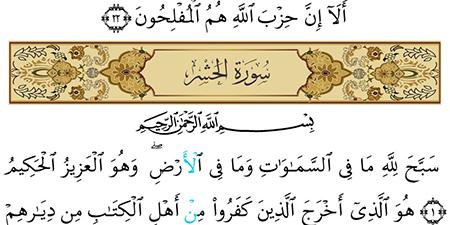 أَلَآ إِنَّ حِزْبَ ٱللَّهِ هُمُ ٱلْمُفْلِحُونَ ﴿٢٢﴾
سُورَةُ الحَشْر
بِسْمِ ٱللَّهِ ٱلرَّحْمَٰنِ ٱلرَّحِيمِ
سَبَّحَ لِلَّهِ مَا فِى ٱلسَّمَٰوَٰتِ وَمَا فِى ٱلْأَرْضِ ۖ وَهُوَ ٱلْعَزِيزُ ٱلْحَكِيمُ
﴿١﴾ هُوَ ٱلَّذِىٓ أَخْرَجَ ٱلَّذِينَ كَفَرُوا۟ مِنْ أَهْلِ ٱلْكِتَٰبِ مِن دِيَٰرِهِمْ